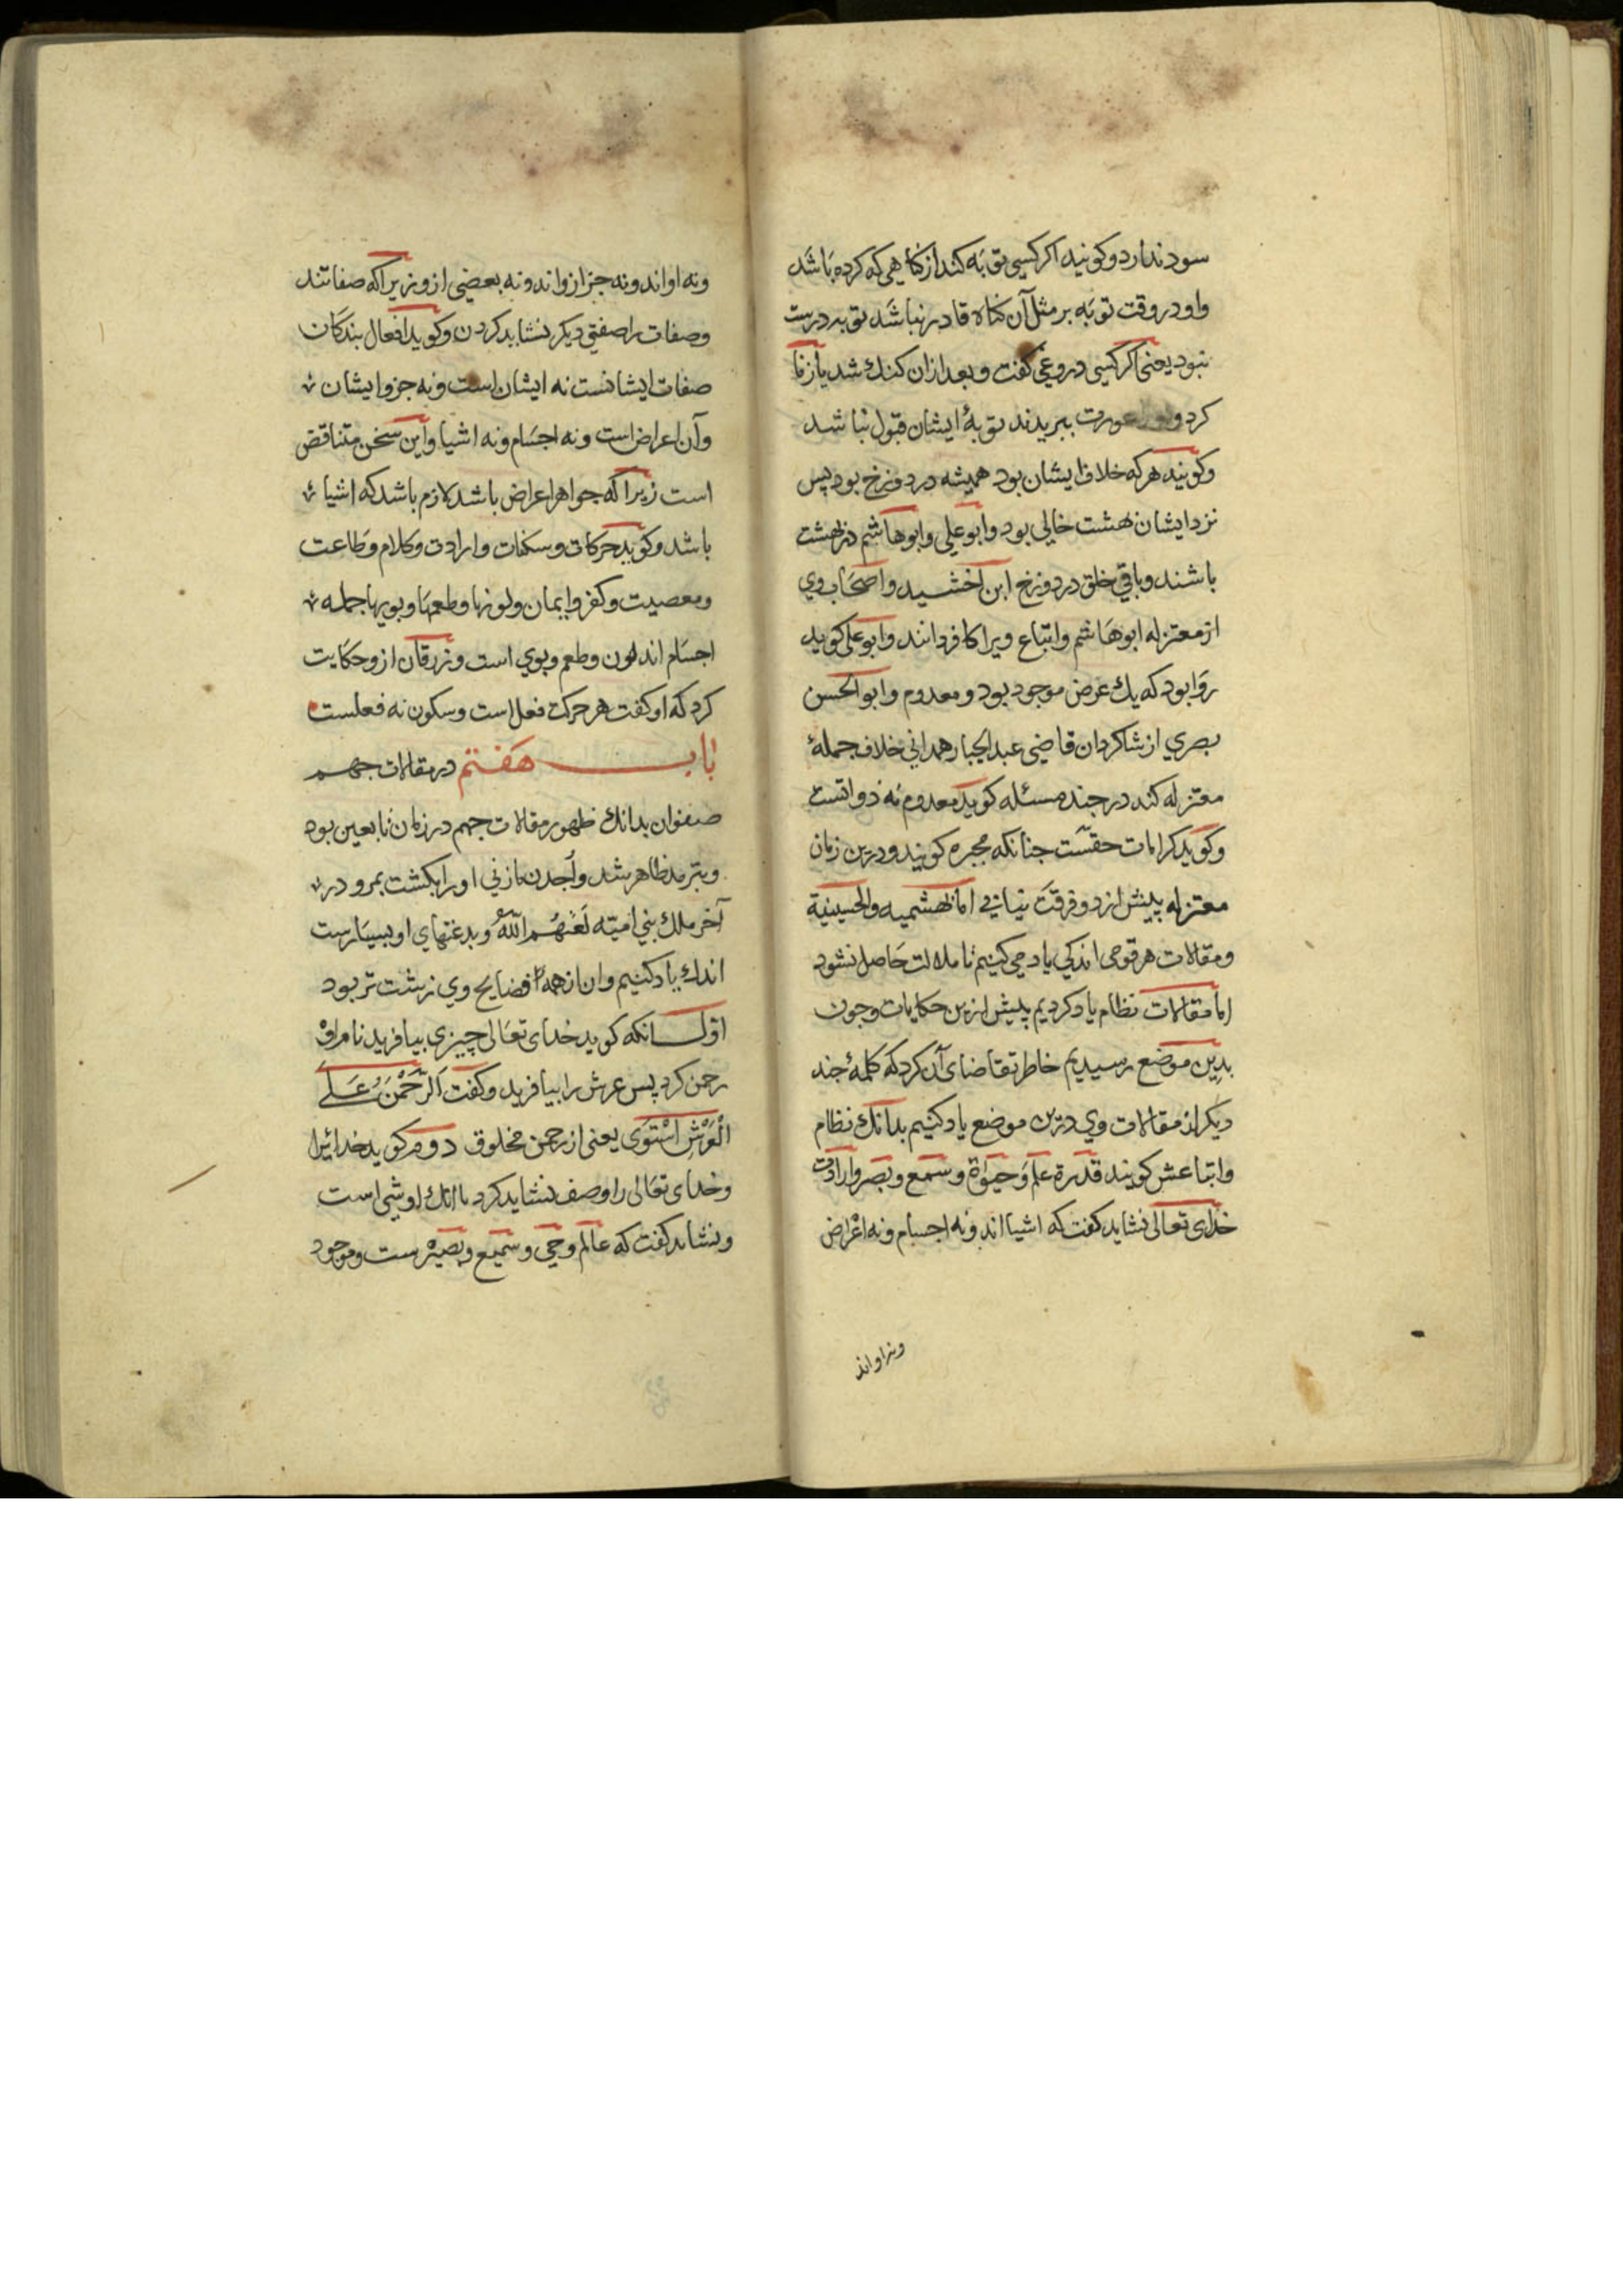 سود ندارد وکویند اکر کسی توبه کند از کناهی که کرده باشد
واو در وقت توبه بر مثل آن کناه قادر نباشد توبه درست
نبود یعنی اکر کسی دروغی کفت وبعد ازان کنك شد یا زنا
کرد عورت ببریدند توبهٔ ایشان قبول نباشد
وکویند هرکه خلاف ایشان بود همیشه در دوزخ بود پس
نزد ایشان بهشت خالی بود وابو علی وابوهاشم در بهشت
باشند وباقی خلق در دوزخ ابن اخشید واصحاب وی
از معتزله ابوهاشم واتباع ویرا کافر دانند وابو علی کوید
روا بود که یك عرض موجود بود ومعدوم وابو الحسن
بصری از شاکردان قاضی عبد الجبار همدانی خلاف جملهٔ
معتزله کند در چند مسئله کوید معدوم نه ذواتست
وکوید کرامات حقست چنانکه مجبره کویند ودرین زمان
معتزله بیش از دو فرقت نیانی اما بهشمیه والحسینیة
ومقالات هر قومی اندکی یاد می کنیم تا ملالت حاصل نشود
اما مقالات نظام یاد کردیم پیش ازین حکایات وچون
بدین موضع رسیدیم خاطر تقاضای آن کرد که کلمهٔ چند
دیکر از مقالات وی درین موضع یاد کنیم بدانك نظام
واتباعش کویند قدرة علم وحیوة وسمع وبصر وارادت
خدای تعالی نشاید کفت که اشیا اند ونه اجسام ونه اعراض
ونه اواند
ونه او اند ونه جز ازو اند ونه بعضی ازو زیراکه صفاتند
وصفات را صفتی دیکر نشاید کردن وکوید افعال بندکان
صفات ایشانست نه ایشان است ونه جز وایشان
وآن اعراض است ونه اجسام ونه اشیا واین سخن متناقض
است زیراکه جواهر اعراض باشد لازم باشد که اشیاء
باشد وکوید حرکات وسکنات وارادت وکلام وطاعت
ومعصیت وکفر وایمان ولونها وطعمها وبویها جمله
اجسام اند لون وطعم وبوی است وزرقان ازو حکایت
کرد که او کفت هر حرکت فعل است وسکون نه فعلست
باب هفتم در مقالات جهم
صفوان بدانك ظهور مقالات جهم در زمان تابعین بود
وبترمذ ظاهر شد واجدن مازنی اورا بکشت بمرو در
آخر ملك بنی امیه لعنهم الله وبدعتهای او بسیارست
اندك یاد کنیم وان از همه فضایح وی زشت تر بود
اول انکه کوید خدای تعالی چیزی بیافرید نام او
رحمن کرد پس عرش را بیافرید وکفت اَلرَّحْمَنُ عَلَی
الْعَرْشِ اسْتَوَی یعنی از رحمن مخلوق دوم کوید خدائیرا
وخدای تعالی را وصف نشاید کرد باانك او شی است
ونشاید کفت که عالم وحی وسمیع وبصیرست وموجود